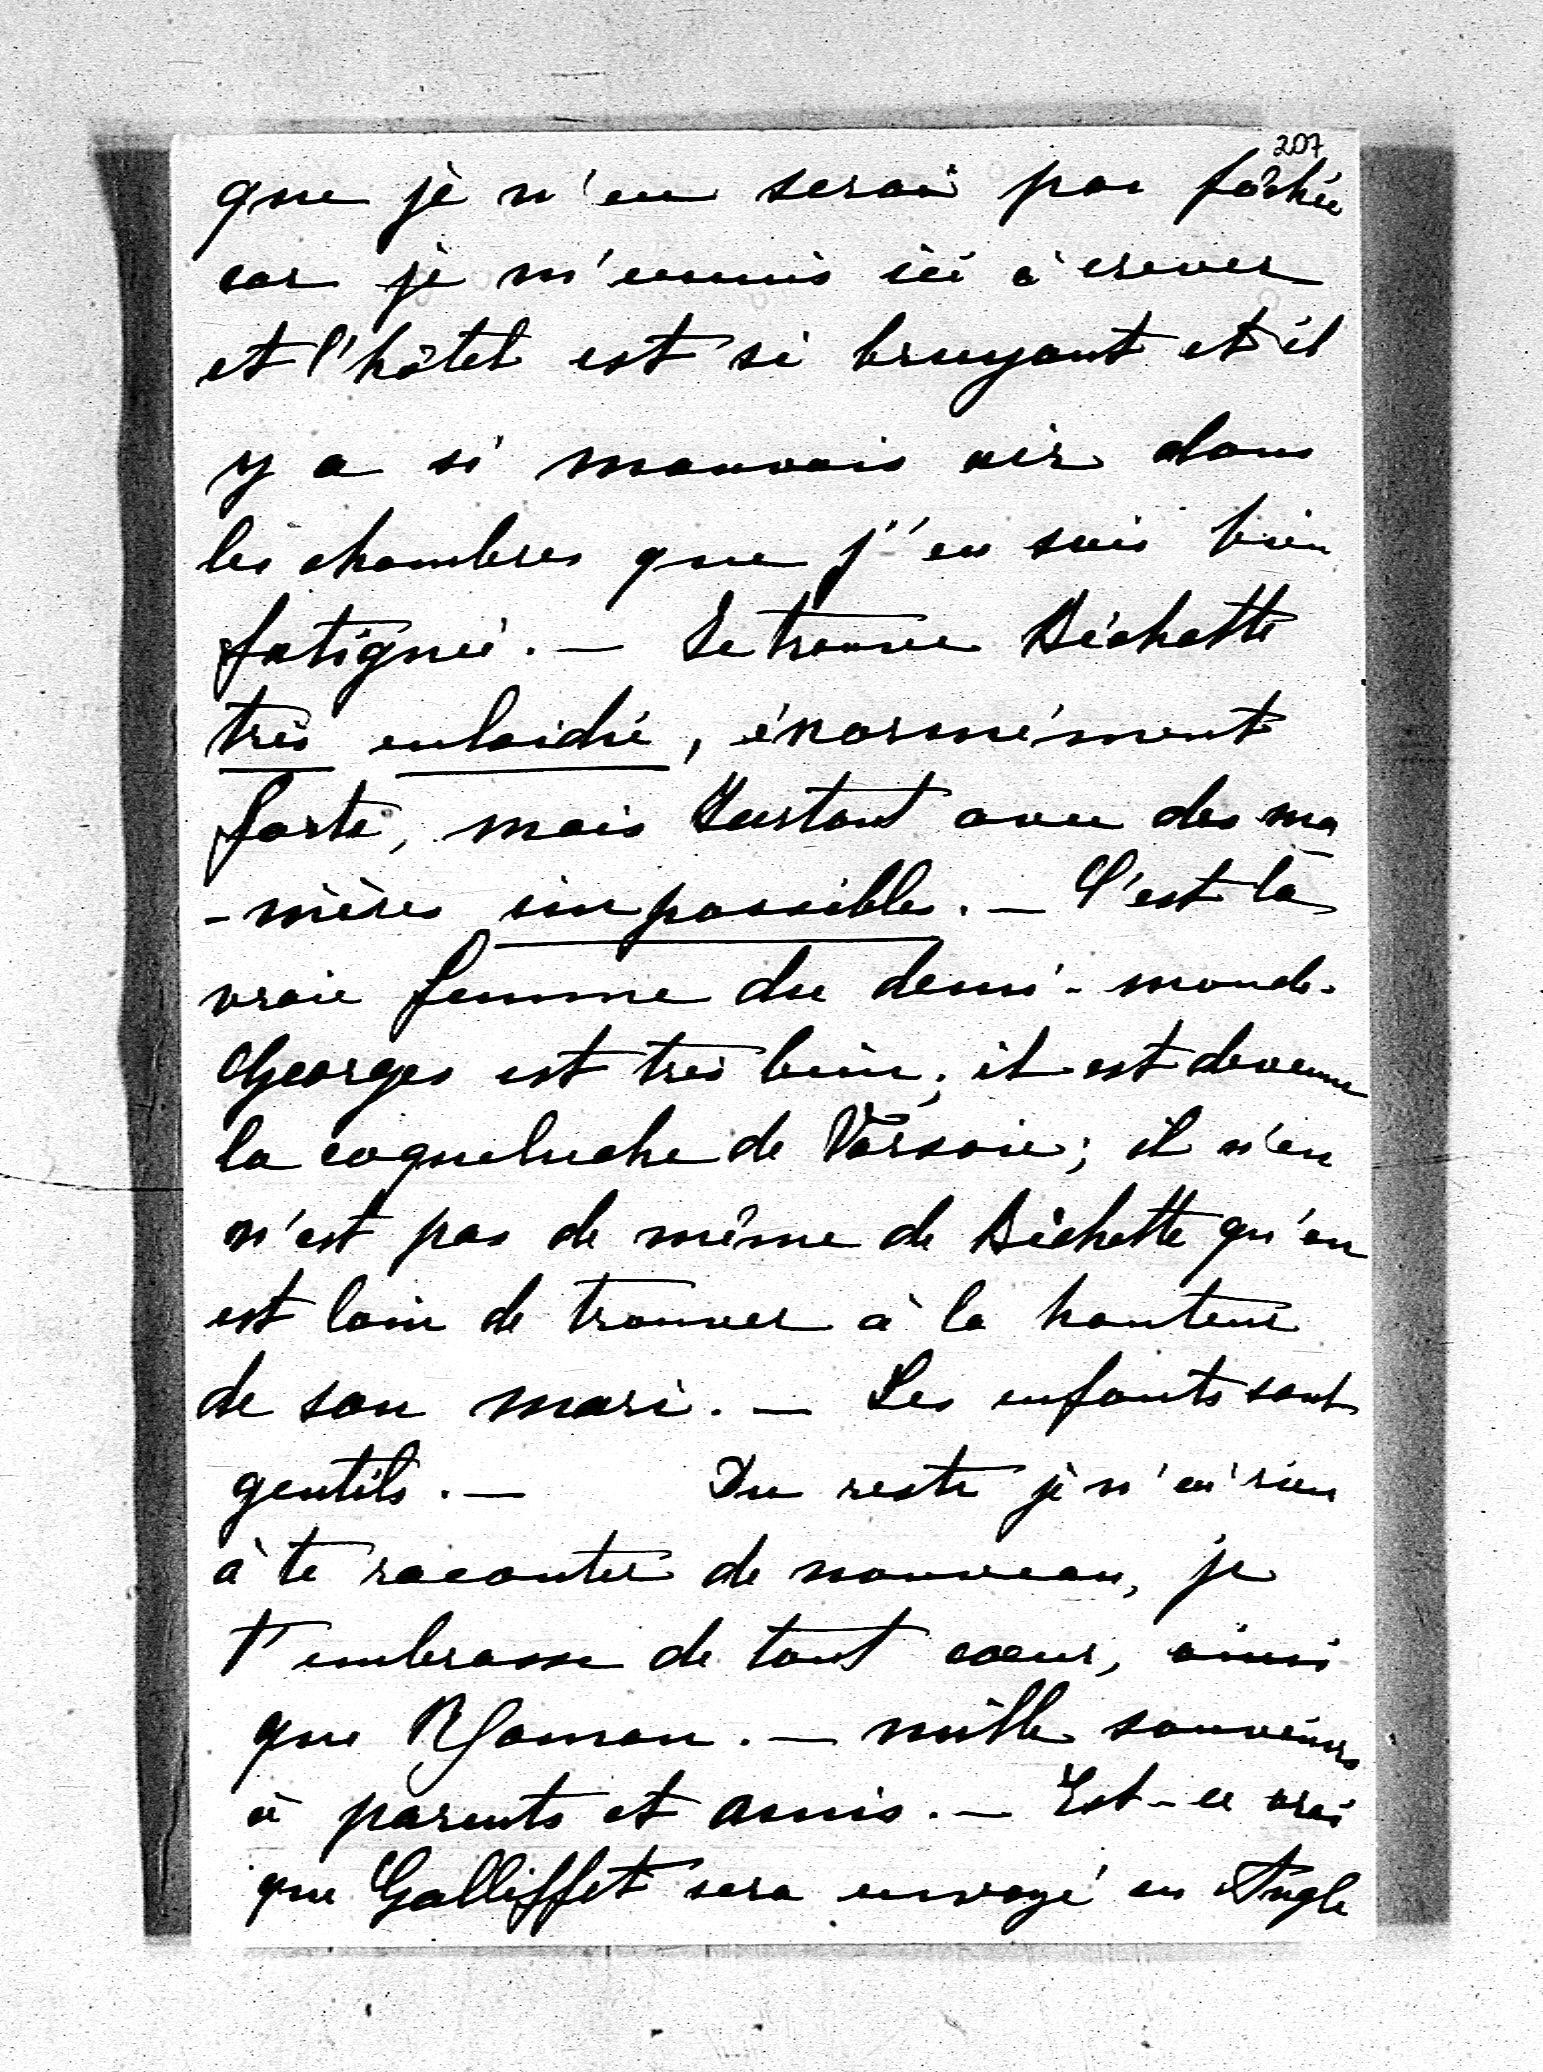 207
que je n'en serai pas fâchée
car je m'ennuis ici à crever
et l'hôtel est si bruyant et il
y a si mauvais air dans
les chambres que j'en suis bien
fatiguée. — Je trouve Bichette
très enlaidie, énormément
forte, mais surtout avec des ma
-nières impossibles. — C'est la
vraie femme du demi-monde.
Georges est très bien; il est devenu
la coqueluche de Varsovie; il n'en
n'est pas de même de Bichette qu'on
est loin de trouver à la hauteur
de son mari. — Les enfants sont
gentils. — Du reste je n'ai rien
à te raconter de nouveau, je
t'embrasse de tout cœur, ainsi
que Maman. — mille souvenirs
à parents et amis. — Est-ce vrai
que Galliffet sera envoyé en Angle